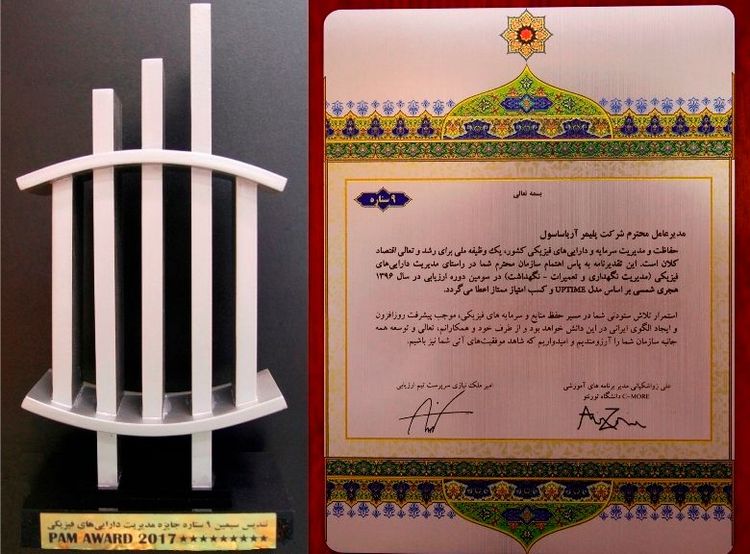 تندیس سیمین ۹ ستاره جایزه مدیریت دارایی‌های فیزیکی
PAM AWARD 2017 ★★★★★★★★★
بسمه تعالی
۹ ستاره
مدیرعامل محترم شرکت پلیمر آریاساسول
حفاظت و مدیریت سرمایه و دارایی‌های فیزیکی کشور، یک وظیفه ملی برای رشد و تعالی اقتصاد
کلان است. این تقدیرنامه به پاس اهتمام سازمان محترم شما در راستای مدیریت دارایی‌های
فیزیکی (مدیریت نگهداری و تعمیرات - نگهداشت) در سومین دوره ارزیابی در سال ۱۳۹۶
هجری شمسی بر اساس مدل UPTIME و کسب امتیاز ممتاز اعطا می‌گردد.
استمرار تلاش ستودنی شما در مسیر حفظ منابع و سرمایه های فیزیکی، موجب پیشرفت روزافزون
و ایجاد الگوی ایرانی در این دانش خواهد بود و از طرف خود و همکارانم، تعالی و توسعه همه
جانبه سازمان شما را آرزومندیم و امیدواریم که شاهد موفقیت‌های آتی شما نیز باشیم.
علی زواشکیانی مدیر برنامه های آموزشی
C-MORE دانشگاه تورنتو
امیر ملک نیازی سرپرست تیم ارزیابی